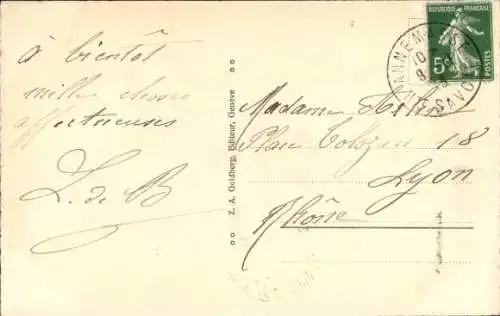 à bientôt
mille choses
affectueuses
L. de B
Z. A. Goldberg, Editeur, Genève
REPUBLIQUE FRANÇAISE
5c
POSTES
ANNEM
SAVOIE
Madame
18
Lyon
Rhône